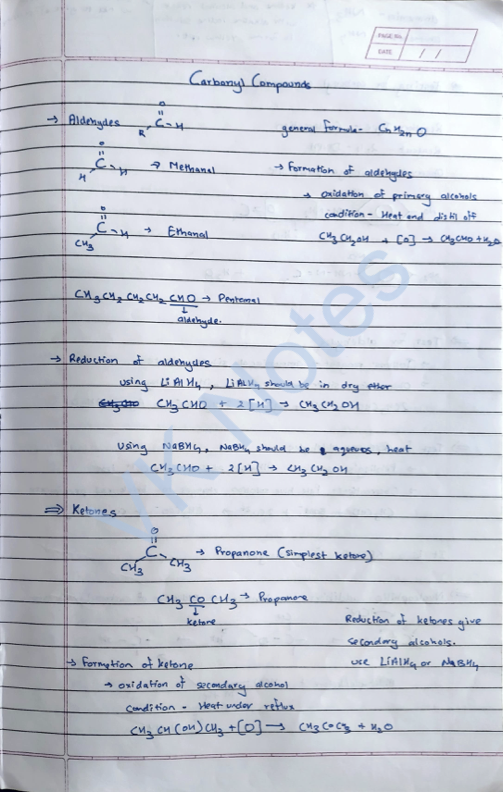 PAGE No.
DATE / /
Carbonyl Compounds
→ Aldehydes R O C H general formula - CnH2nO
H O C H → Methanal → Formation of aldehydes
→ oxidation of primary alcohols
condition - Heat and distil off
CH3 O C H → Ethanal CH3CH2OH + [O] → CH3CHO + H2O
CH3CH2CH2CH2CHO → Pentanal
↓
aldehyde.
→ Reduction of aldehydes
using LiAlH4, LiAlH4 should be in dry ether
CH3CHO CH3CHO + 2[H] → CH3CH2OH
using NaBH4, NaBH4 should be aqueous, heat
CH3CHO + 2[H] → CH3CH2OH
⇒ Ketones
CH3 O C CH3 → Propanone (simplest ketone)
CH3COCH3 → Propanone
↓
ketone
Reduction of ketones give
secondary alcohols.
use LiAlH4 or NaBH4
→ Formation of ketone
→ oxidation of secondary alcohol
condition - Heat under reflux
CH3CH(OH)CH3 + [O] → CH3COCH3 + H2O
VK Notes